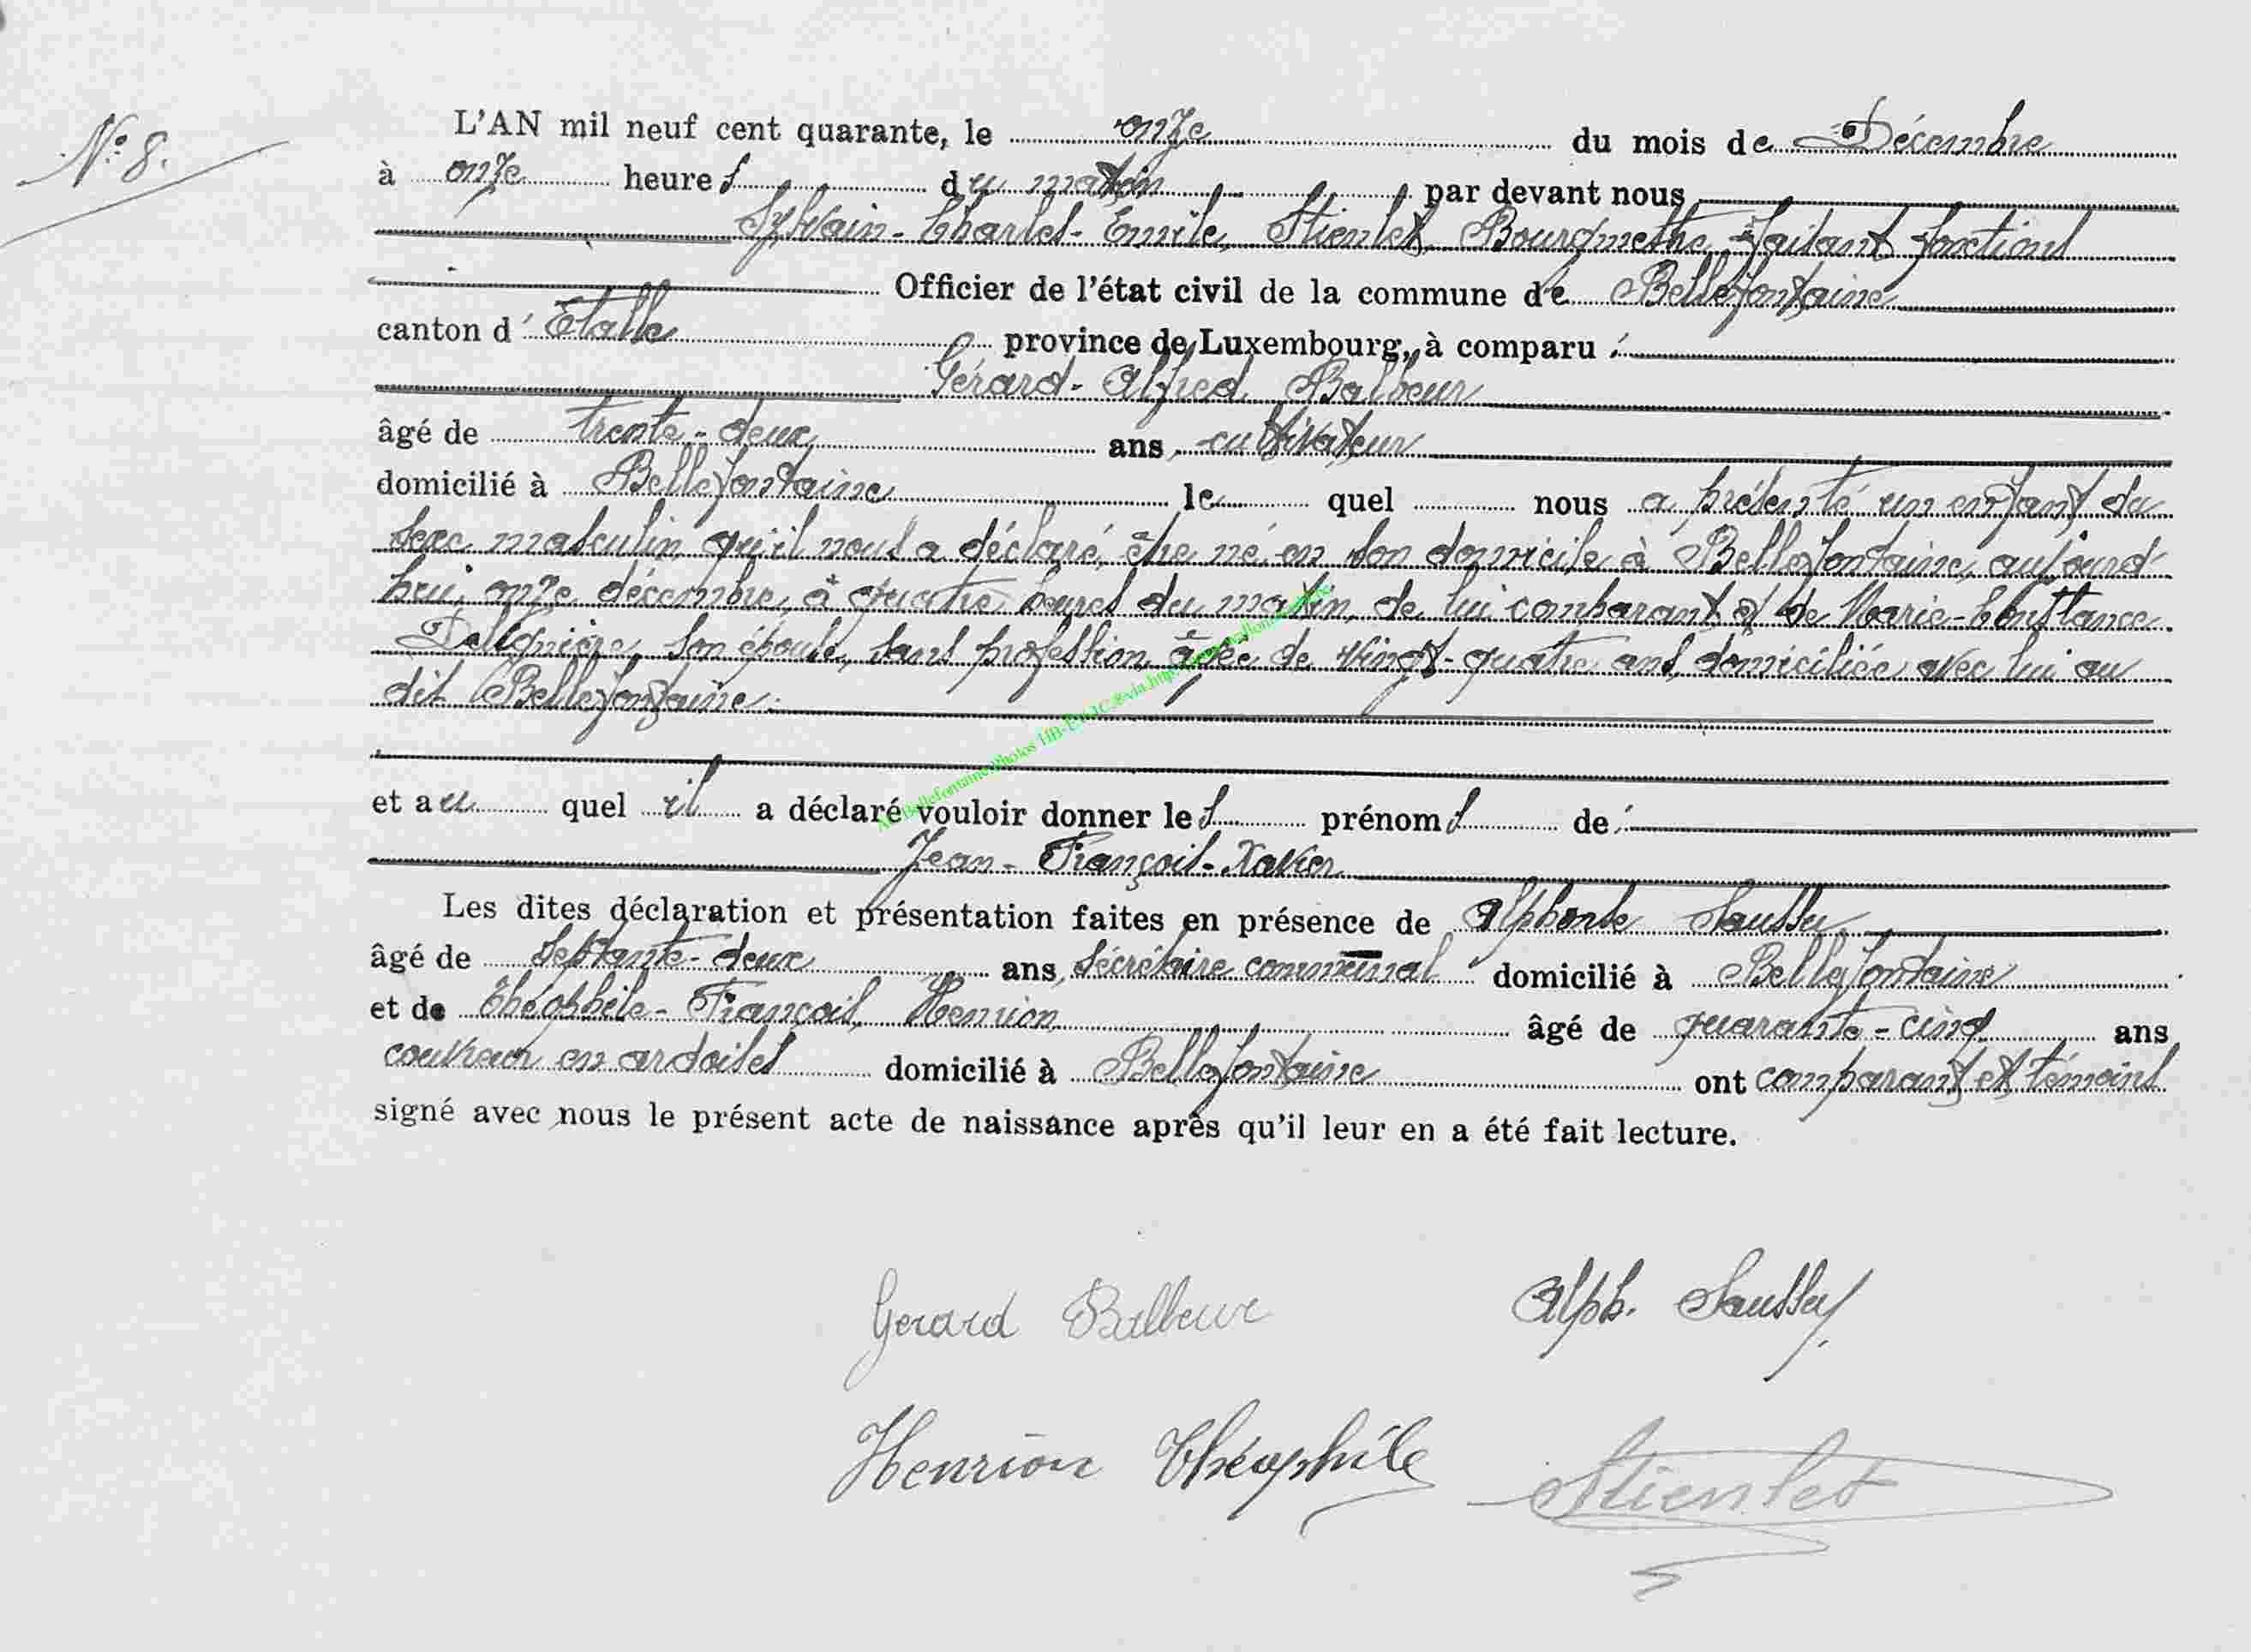 N° 8.
L'AN mil neuf cent quarante, le onze du mois de Décembre
à onze heures du matin par devant nous
Sylvain-Charles-Emile, Stienlet, Bourgmestre, faisant fonctions
Officier de l'état civil de la commune de Bellefontaine
canton d'Etalle province de Luxembourg, à comparu :
Gérard-Alfred, Balbeur
âgé de trente-deux ans, cultivateur
domicilié à Bellefontaine lequel nous a présenté un enfant du
sexe masculin, qu'il nous a déclaré, être né, en son domicile à Bellefontaine, aujourd'
hui, onze décembre, à quatre heures du matin, de lui comparant et de Marie-Constance
son épouse, sans profession, âgée de vingt-quatre ans, domiciliée avec lui au
dit Bellefontaine.
et auquel il a déclaré vouloir donner les prénoms de :
Jean-François-Xavier
Les dites déclaration et présentation faites en présence de Alphonse Saussu
âgé de septante-deux ans, sécrétaire communal domicilié à Bellefontaine
et de Théophile-François, Henrion âgé de quarante-cinq ans
couvreur en ardoises domicilié à Bellefontaine ont comparant et témoins
signé avec nous le présent acte de naissance après qu'il leur en a été fait lecture.
Gerard Balbeur Alph. Saussu
Henrion Théophile Stienlet